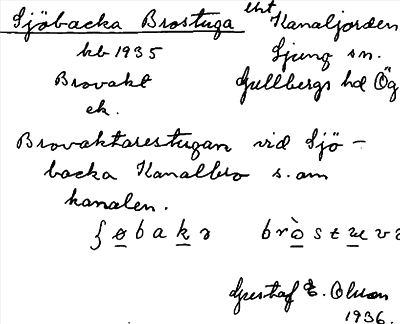 Sjöbacka Brostuga lht Kanaljorden
hb 1935 Ljung sn.
Brovakt Gullbergs hd Ög
ek.
Brovaktarestugan vid Sjö-
backa Kanalbro s. om
kanalen.
ʃøbakɘ bròstʉva
Gustaf E. Olsson
1936.